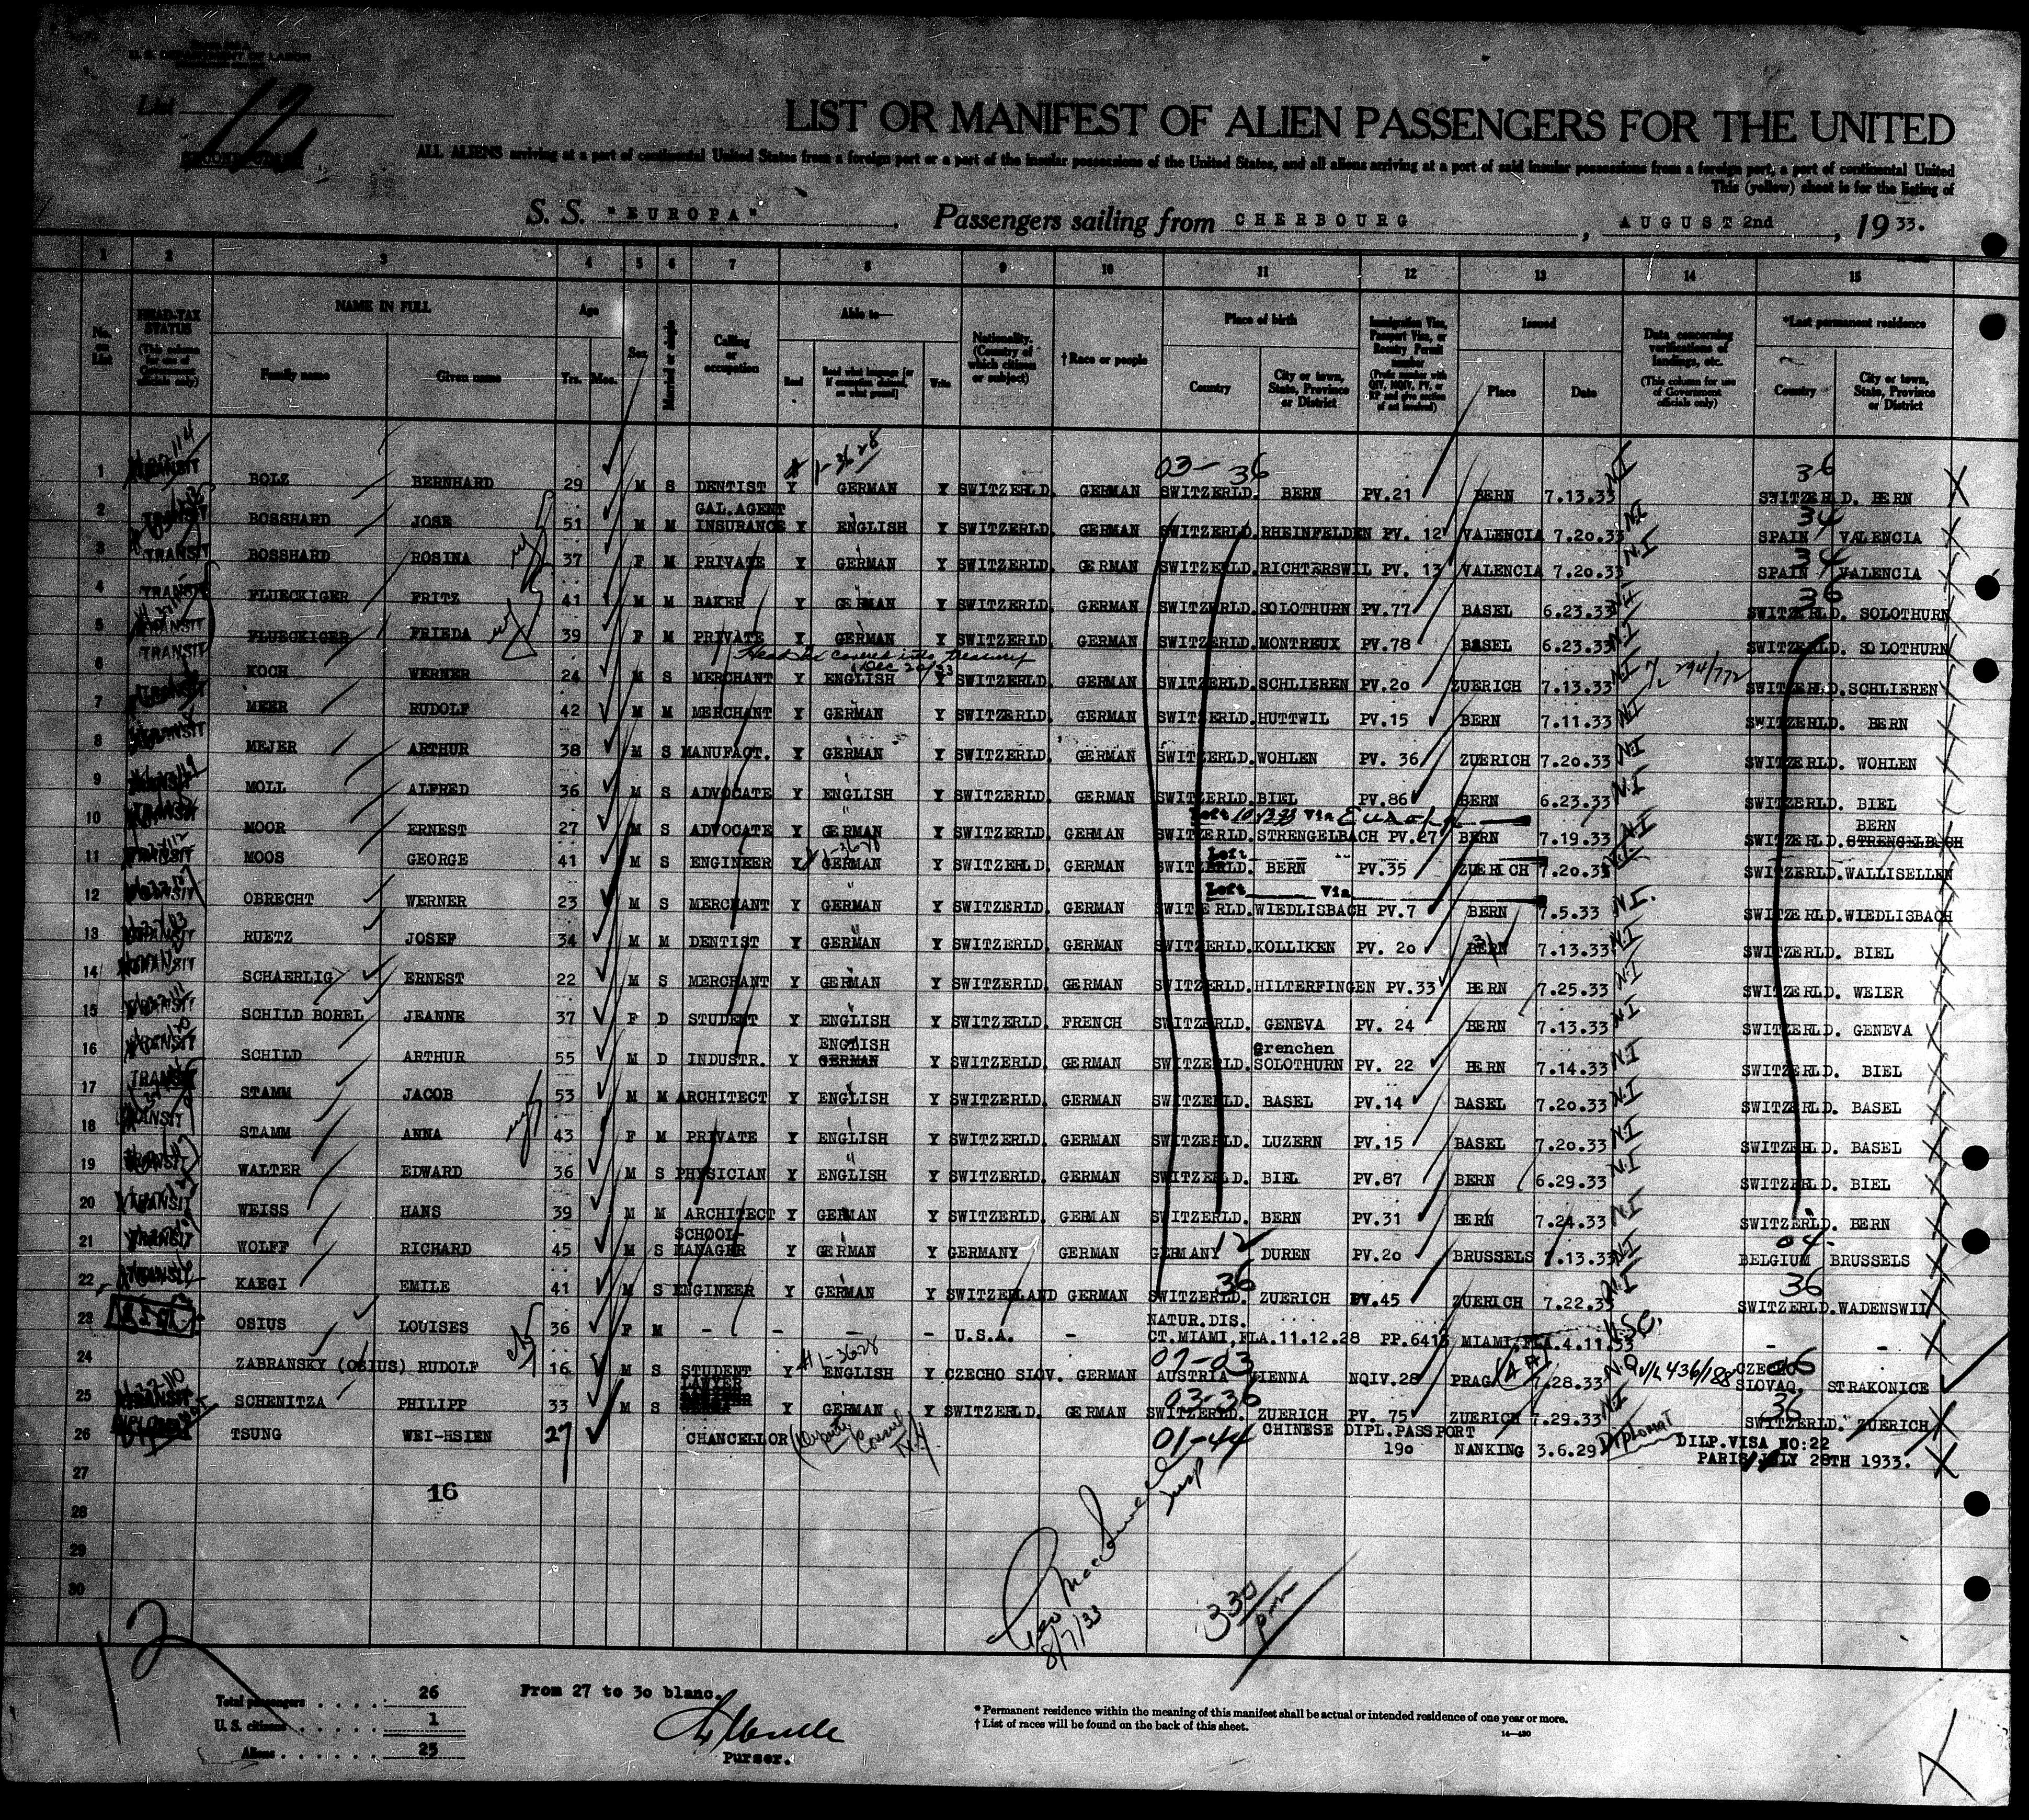 U. S. DEPARTMENT OF LABOR
List 12
LIST OR MANIFEST OF ALIEN PASSENGERS FOR THE UNITED
ALL ALIENS arriving at a port of continental United States from a foreign port or a port of the insular possessions of the United States, and all aliens arriving at a port of said insular possessions from a foreign port, a port of continental United
This (yellow) sheet is for the listing of
S. S. "EUROPA" Passengers sailing from CHERBOURG, AUGUST 2nd, 19 33.
1 2 3 4 5 6 7 8 9 10 11 12 13 14 15
No. on List
HEAD-TAX STATUS (This column for use of Government officials only)
NAME IN FULL Family name Given name
Age Yrs. Mos.
Sex
Married or single
Calling or occupation
Able to— Read Read what language [or if exemption claimed, on what ground] Write
Nationality. (Country of which citizen or subject)
†Race or people
Place of birth Country City or town, State, Province or District
Immigration Visa, Passport Visa, or Reentry Permit number (Prefix number with QIV, NQIV, PV, or RP and give section of act involved)
Issued Place Date
Data concerning verifications of landings, etc. (This column for use of Government officials only)
*Last permanent residence Country City or town, State, Province or District
03- 36 36
1 TRANSIT BOLZ BERNHARD 29 M S DENTIST Y GERMAN Y SWITZERLD. GERMAN SWITZERLD. BERN PV.21 BERN 7.13.33 N.I SWITZERLD. BERN
34
2 TRANSIT BOSSHARD JOSE 51 M M GAL.AGENT INSURANCE Y ENGLISH Y SWITZERLD. GERMAN SWITZERLD. RHEINFELDEN PV. 12 VALENCIA 7.20.33 N.I SPAIN VALENCIA
34
3 TRANSIT BOSSHARD ROSINA 37 F M PRIVATE Y GERMAN Y SWITZERLD. GERMAN SWITZERLD. RICHTERSWIL PV. 13 VALENCIA 7.20.33 N.I SPAIN VALENCIA
36
4 TRANSIT FLUECKIGER FRITZ 41 M M BAKER Y GERMAN Y SWITZERLD. GERMAN SWITZERLD. SOLOTHURN PV.77 BASEL 6.23.33 N.I SWITZERLD. SOLOTHURN
5 TRANSIT FLUECKIGER FRIEDA 39 F M PRIVATE Y GERMAN Y SWITZERLD. GERMAN SWITZERLD. MONTREUX PV.78 BASEL 6.23.33 N.I SWITZERLD. SOLOTHURN
Head tax covered into Treasury Dec 20/33
6 TRANSIT KOCH WERNER 24 M S MERCHANT Y ENGLISH Y SWITZERLD. GERMAN SWITZERLD. SCHLIEREN PV.20 ZUERICH 7.13.33 N.I V/L 294/772 SWITZERLD. SCHLIEREN
7 TRANSIT MEER RUDOLF 42 M M MERCHANT Y GERMAN Y SWITZERLD. GERMAN SWITZERLD. HUTTWIL PV.15 BERN 7.11.33 N.I SWITZERLD. BERN
8 TRANSIT MEJER ARTHUR 38 M S MANUFACT. Y GERMAN Y SWITZERLD. GERMAN SWITZERLD. WOHLEN PV. 36 ZUERICH 7.20.33 N.I SWITZERLD. WOHLEN
9 MOLL ALFRED 36 M S ADVOCATE Y ENGLISH Y SWITZERLD. GERMAN SWITZERLD. BIEL PV.86 BERN 6.23.33 N.I SWITZERLD. BIEL
Left Via Europa
10 TRANSIT MOOR ERNEST 27 M S ADVOCATE Y GERMAN Y SWITZERLD. GERMAN SWITZERLD. STRENGELBACH PV.27 BERN 7.19.33 N.I SWITZERLD. BERN STRENGELBACH
Left
11 TRANSIT MOOS GEORGE 41 M S ENGINEER Y GERMAN Y SWITZERLD. GERMAN SWITZERLD. BERN PV.35 ZUERICH 7.20.33 N.I SWITZERLD. WALLISELLEN
Left Via
12 TRANSIT OBRECHT WERNER 23 M S MERCHANT Y GERMAN Y SWITZERLD. GERMAN SWITZERLD. WIEDLISBACH PV.7 BERN 7.5.33 N.I. SWITZERLD. WIEDLISBACH
13 TRANSIT RUETZ JOSEF 34 M M DENTIST Y GERMAN Y SWITZERLD. GERMAN SWITZERLD. KOLLIKEN PV. 20 BERN 7.13.33 N.I SWITZERLD. BIEL
14 TRANSIT SCHAERLIG ERNEST 22 M S MERCHANT Y GERMAN Y SWITZERLD. GERMAN SWITZERLD. HILTERFINGEN PV.33 BERN 7.25.33 N.I SWITZERLD. WEIER
15 TRANSIT SCHILD BOREL JEANNE 37 F D STUDENT Y ENGLISH Y SWITZERLD. FRENCH SWITZERLD. GENEVA PV. 24 BERN 7.13.33 N.I SWITZERLD. GENEVA
16 TRANSIT SCHILD ARTHUR 55 M D INDUSTR. Y ENGLISH GERMAN Y SWITZERLD. GERMAN SWITZERLD. Grenchen SOLOTHURN PV. 22 BERN 7.14.33 N.I SWITZERLD. BIEL
17 TRANSIT STAMM JACOB 53 M M ARCHITECT Y ENGLISH Y SWITZERLD. GERMAN SWITZERLD. BASEL PV.14 BASEL 7.20.33 N.I SWITZERLD. BASEL
18 TRANSIT STAMM ANNA 43 F M PRIVATE Y ENGLISH Y SWITZERLD. GERMAN SWITZERLD. LUZERN PV.15 BASEL 7.20.33 N.I SWITZERLD. BASEL
19 TRANSIT WALTER EDWARD 36 M S PHYSICIAN Y ENGLISH Y SWITZERLD. GERMAN SWITZERLD. BIEL PV.87 BERN 6.29.33 N.I SWITZERLD. BIEL
20 TRANSIT WEISS HANS 39 M M ARCHITECT Y GERMAN Y SWITZERLD. GERMAN SWITZERLD. BERN PV.31 BERN 7.24.33 N.I SWITZERLD. BERN
12 04-
21 TRANSIT WOLFF RICHARD 45 M S SCHOOL-MANAGER Y GERMAN Y GERMANY GERMAN GERMANY DUREN PV.20 BRUSSELS 7.13.33 N.I BELGIUM BRUSSELS
36 36
22 TRANSIT KAEGI EMILE 41 M S ENGINEER Y GERMAN Y SWITZERLAND GERMAN SWITZERLD. ZUERICH PV.45 ZUERICH 7.22.33 N.I SWITZERLD. WADENSWIL
23 OSIUS LOUISES 36 F M - - - - U.S.A. - NATUR.DIS. CT.MIAMI, FLA.11.12.28 PP.6413 MIAMI,FLA.4.11.33 U.S.C. - -
07-03
24 ZABRANSKY (OSIUS) RUDOLF 16 M S STUDENT Y ENGLISH Y CZECHO SLOV. GERMAN AUSTRIA VIENNA NQIV.28 PRAG 7.28.33 N.Q V/L 436/188 CZECHO SLOVAQ. STRAKONICE
03-36 36
25 TRANSIT SCHENITZA PHILIPP 33 M S LAWYER Y GERMAN Y SWITZERLD. GERMAN SWITZERLD. ZUERICH PV. 75 ZUERICH 7.29.33 N.I SWITZERLD. ZUERICH
26 DIPLOMAT TSUNG WEI-HSIEN 27 CHANCELLOR (Deputy Consul 01-44 CHINESE DIPL.PASSPORT 190 NANKING 3.6.29 Diplomat DILP.VISA NO:22 PARIS JULY 28TH 1933.
27
16
28
29
30
8/7/33
330 pm
12
Total passengers 26
U. S. citizens 1
Aliens 25
From 27 to 30 blanc.
Purser.
* Permanent residence within the meaning of this manifest shall be actual or intended residence of one year or more.
† List of races will be found on the back of this sheet.
14—430